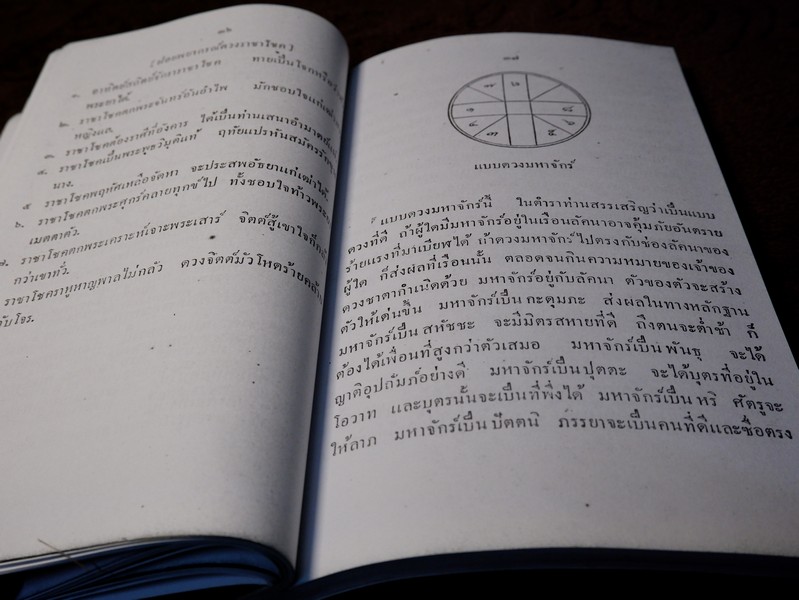 ๓๖
(คำพยากรณ์ดวงราชาโชค)
ราชาโชค ทายเป็นโชค
พระยาได้.
๒. ราชาโชคตกพระจันทร์อันอำไพ มักชอบใจแก่
หญิงแล.
๓. ราชาโชคต้องราศีที่อังคาร ได้เป็นท่านเสนาอำมาตย์
๔. ราชาโชคเป็นพระพุธวิมุติแท้ ฤทัยแปรหันสมัคร
นาง.
๕ ราชาโชคพฤหัศเหลือจัดหา จะประสพอัธยาแก่เฒ่าได้.
๖. ราชาโชคตกพระศุกร์คลายทุกข์ไป ทั้งชอบใจท้าวพระ
เมตตาตัว.
๗. ราชาโชคตกพระเคราะห์เจาะพระเสาร์ จิตต์สู้เขาใจ
กว่าเขาทั่ว.
ราชาโชคราหูหาญพาลไม่กลัว ดวงจิตต์มัวโหดร้าย
จับโจร.
๓๗
๗ ๖
๑ ๔
๓ ๕
แบบดวงมหาจักร์
แบบดวงมหาจักร์นี้ ในตำราท่านสรรเสริญว่าเป็นแบบ
ดวงที่ดี ถ้าผู้ใดมีมหาจักร์อยู่ในเรือนลัคนาอาจคุ้มภัยอันตราย
ร้ายแรงที่มาเบียฬได้ ถ้าดวงมหาจักร์ไปตรงกับช่องลัคนาของ
ผู้ใด ก็ส่งผลที่เรือนนั้น ตลอดจนกินความหมายของเจ้าของ
ดวงชาตากำเนิดด้วย มหาจักร์อยู่กับลัคนา ตัวของตัวจะสร้าง
ตัวให้เด่นขึ้น มหาจักร์เป็น กะดุมภะ ส่งผลในทางหลักฐาน
มหาจักร์เป็น สหัชชะ จะมีมิตรสหายที่ดี ถึงตนจะต่ำช้า ก็
ต้องได้เพื่อนที่สูงกว่าตัวเสมอ มหาจักร์เป็น พันธุ จะได้
ญาติอุปถัมภ์อย่างดี มหาจักร์เป็น ปุตตะ จะได้บุตรที่อยู่ใน
โอวาท และบุตรนั้นจะเป็นที่พึ่งได้ มหาจักร์เป็น หริ ศัตรูจะ
ให้ลาภ มหาจักร์เป็น ปัตตนิ ภรรยาจะเป็นคนที่ดีและซื่อตรง